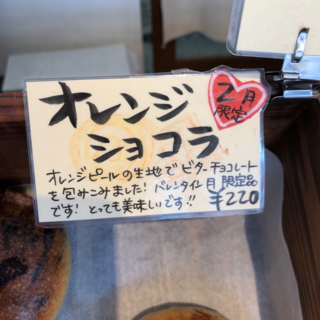 オレンジ
ショコラ
2月
限定
オレンジピールの生地でビターチョコレート
を包みこみました！バレンタイン月限定品
です！とっても美味しいです!!
¥220